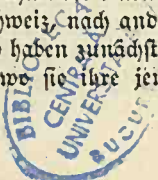 chweiz nach and
haben zunächst
wo sie ihre jei
BIBLIOTECA
CENTRALĂ
UNIVERSITAR
BUCUR